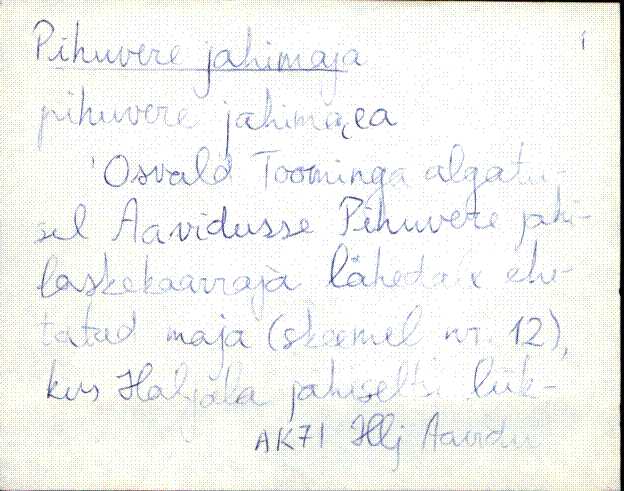 Pihuvere jahimaja
1
pihuvere jahima,ea
'Osvald Toominga algatu-
sel Aavidusse Pihuvere jahi-
laskekaarraja lähedale ehi-
tatud maja (skeemel nr. 12),
kus Haljala jahiseltsi liik-
AK71 Hlj Aavidu